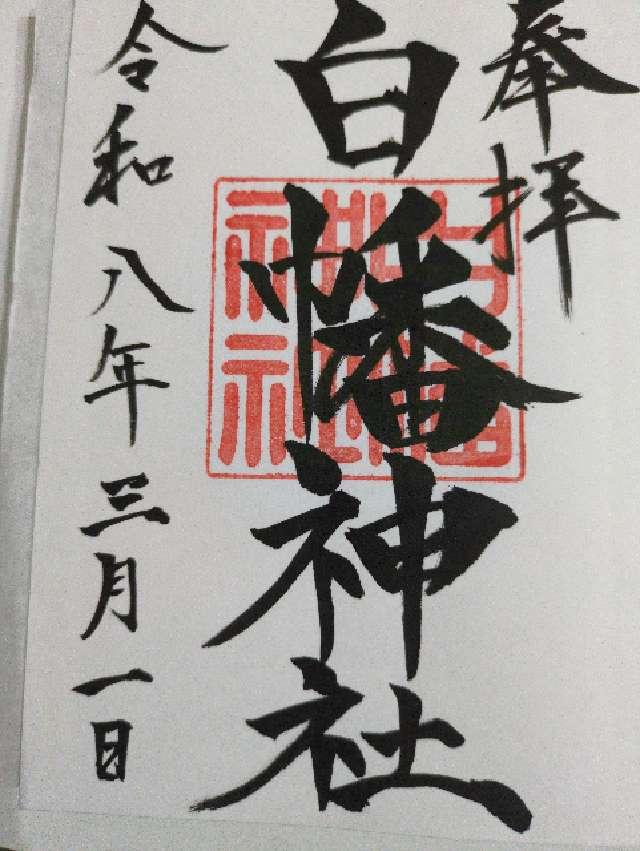 奉拝
白幡神社
令和八年三月一日